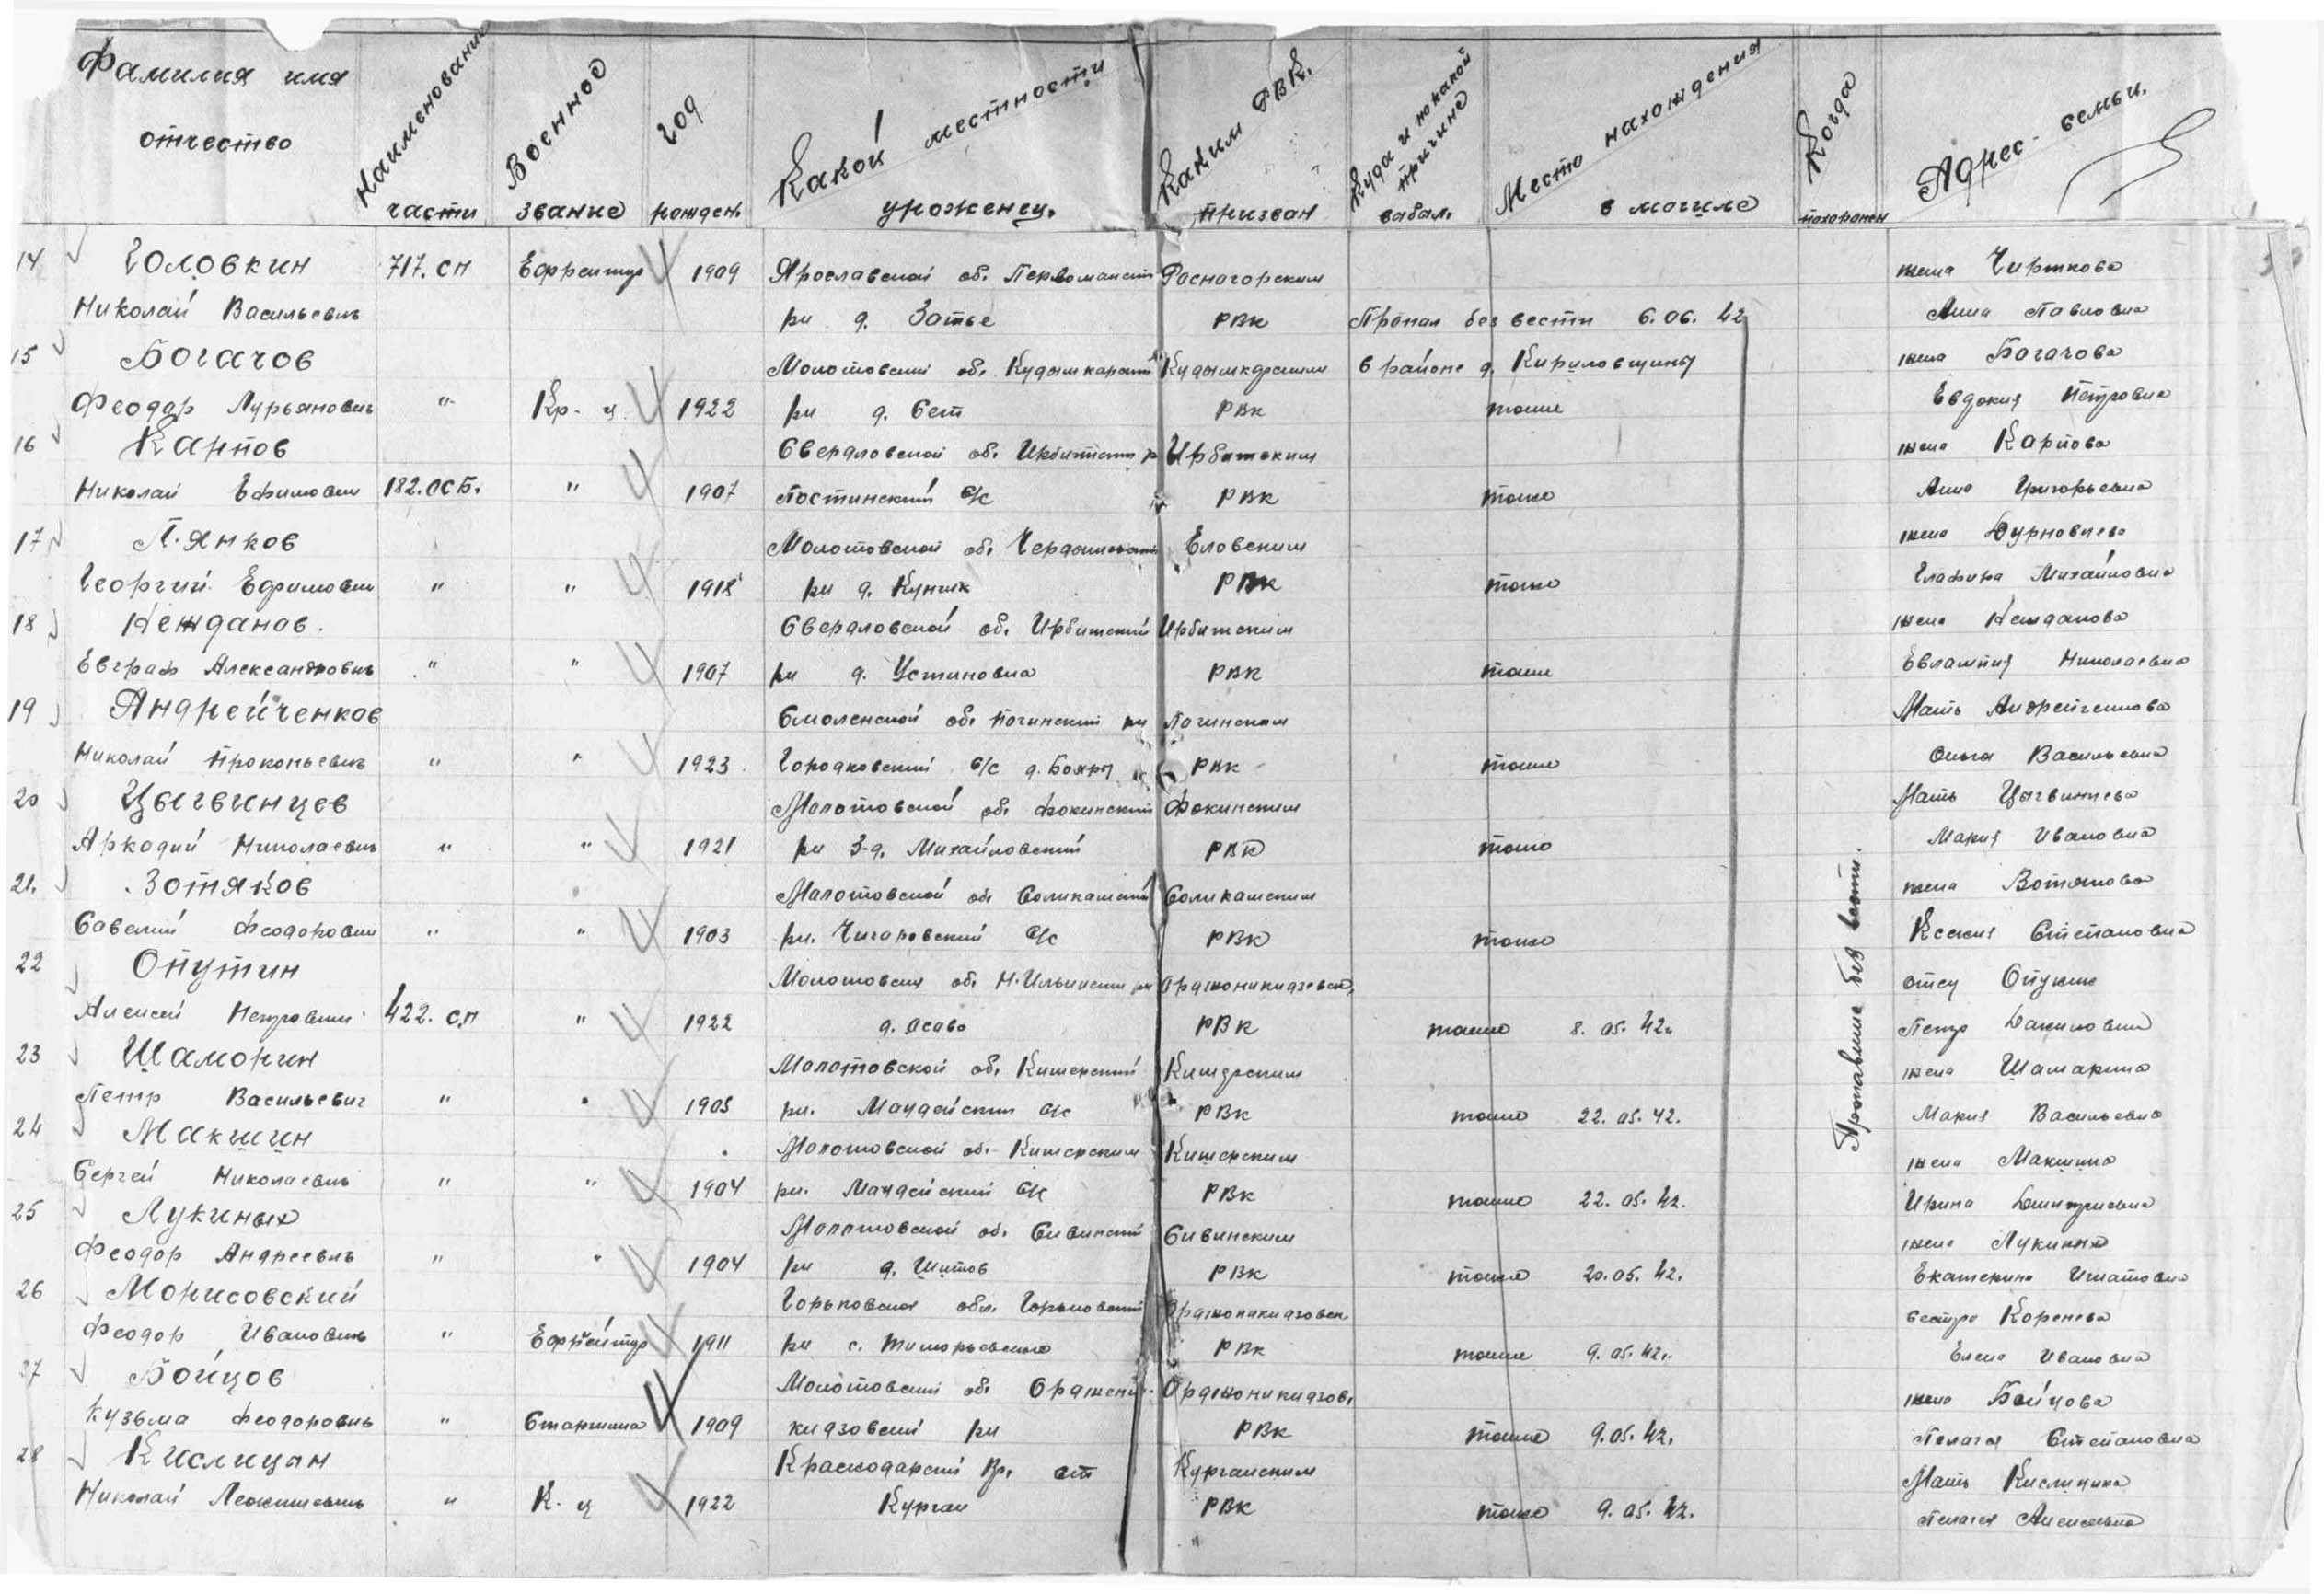 Фамилия имя отчество
Наименование части
Военное звание
год рожден.
Какой местности уроженец.
Каким РВК. призван
Куда и по какой причине выбыл.
Место нахождения в могиле
Когда похоронен
Адрес семьи.
14 Головкин 717. СП Ефрейтор 1909 Ярославской об. Первомайский жена
Николай Васильевич рн д. РВК Пропал без вести 6.06.42 Анна Павловна
15 Богачов Молотовский об. в районе д. Кириловщины жена Богачова
Феодор Лурьянович " Кр-ц 1922 рн д. РВК тоже Евдокия Петровна
16 Карпов Свердловской об. Ирбитским жена Карпова
Николай Ефимович 182. ОСБ. " 1907 с/с РВК тоже Анна Григорьевна
17 П.янков Молотовской об. Еловским жена
Георгий Ефимович " " 1918 рн д. РВК тоже Глафира Михайловна
18 Нежданов. Свердловской об. Ирбитский Ирбитским жена Нежданова
Евграф Александрович " " 1907 рн д. Устиновка РВК тоже Евлампия Николаевна
19 Андрейченков Смоленской об. Починский рн Починским Мать Андрейченкова
Николай Прокопьевич " " 1923 Городковский с/с д. Бояры РВК тоже Ольга Васильевна
20 Цыгвинцев Молотовской об. Фокинский Фокинским Мать Цыгвинцева
Аркадий Николаевич " " 1921 рн 3-д. Михайловский РВК тоже Мария Ивановна
21. Зотяков Молотовской об. Соликамский Соликамским жена
Савелий Феодорович " " 1903 рн. с/с РВК тоже Ксения Степановна
22 Опутин Молотовская об. Н.Ильинский рн отец
Алексей Петрович 422. СП " 1922 д. РВК тоже 8.05.42. Петр Данилович
23 Шаморин Молотовской об. Кишертский жена
Петр Васильевич " " 1905 рн. с/с РВК тоже 22.05.42. Мария Васильевна
24 Макшин Молотовской об. жена Макшина
Сергей Николаевич " " 1904 рн. с/с РВК тоже 22.05.42. Ирина Дмитриевна
25 Лукиных Молотовской об. Сивинский Сивинским жена Лукиных
Феодор Андреевич " " 1904 рн д. Шитов РВК тоже 20.05.42. Екатерина
26 Морисовский Горьковская обл. Горьковский сестра Коренева
Феодор Иванович " Ефрейтор 1911 рн с. РВК тоже 9.05.42. Елена Ивановна
27 Бойцов Молотовский об. Орджени- Орджоникидзов. жена Бойцова
Кузьма Феодорович " Старшина 1909 кидзовский рн РВК тоже 9.05.42. Пелагея Степановна
28 Кислицин Краснодарский Кр. ст Курганским Мать Кислицина
Николай " К-ц 1922 Курган РВК тоже 9.05.42. Пелагея Алексеевна
Пропавшие без вести.